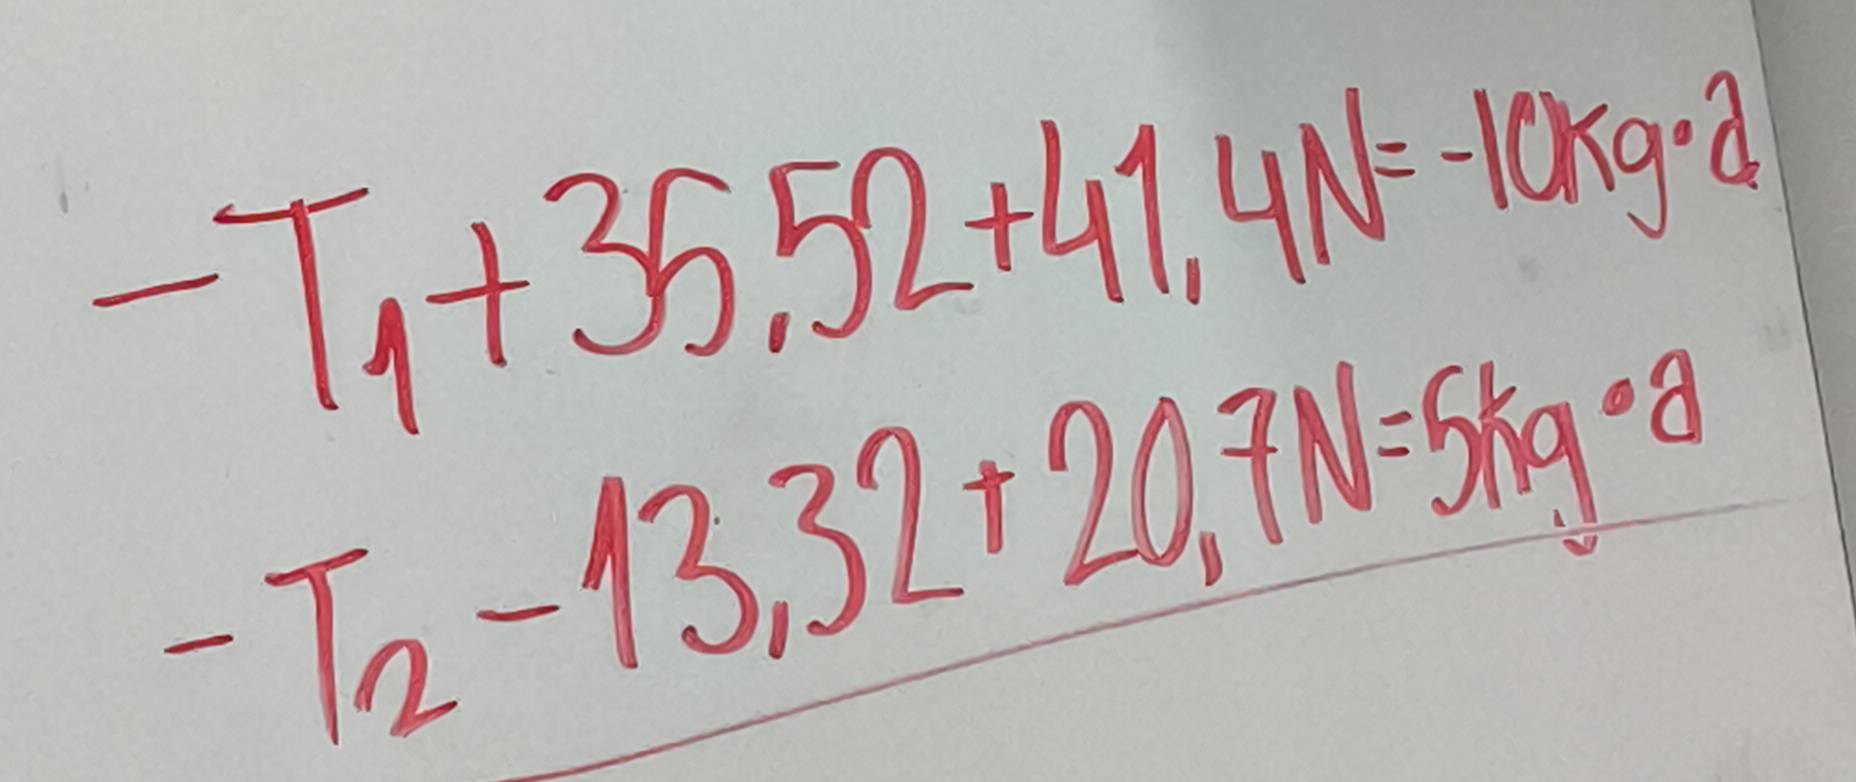 -T₁+35,52+41,4N=-10kg·a
-T₂-13,32+20,7N=5kg·a